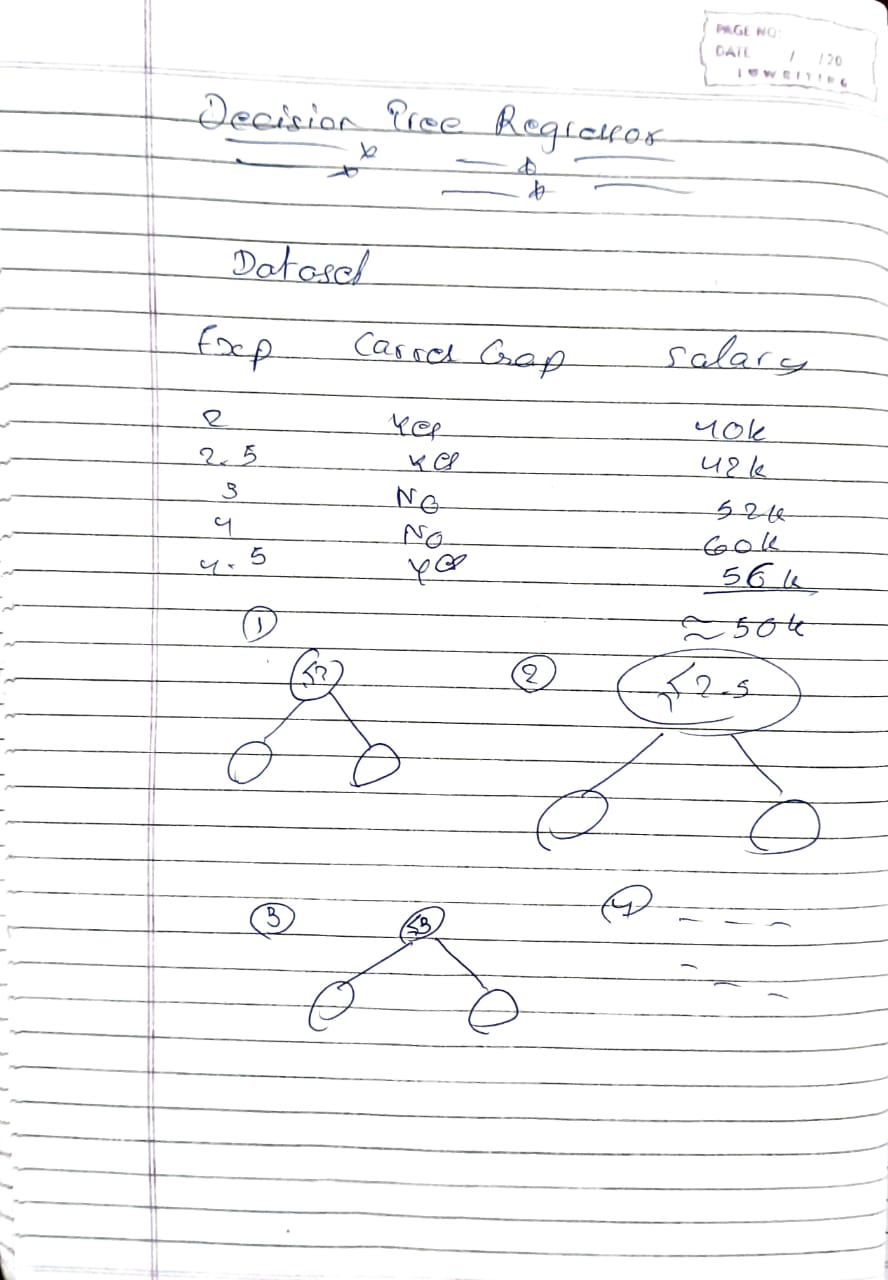 PAGE NO:
DATE / /20
Decision Tree Regressor
Dataset
Exp Carrer Gap Salary
2 Yes 40k
2.5 Yes 42k
3 No 52k
4 No 60k
4.5 Yes 56k
① ≈ 50k
≤2 ② ≤2.5
③ ≤3 ④ - - -
- - -